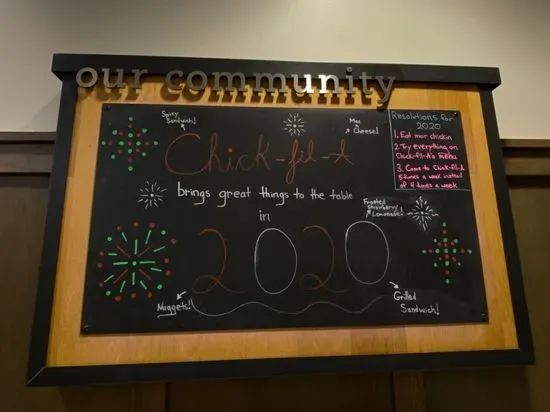 our community
Spicy
Sandwich!
Mac
& Cheese!
Resolutions for
2020
1. Eat mor chickin
2. Try everything on
Chick-fil-A's menu
3. Come to Chick-fil-A
5 times a week instead
of 4 times a week
Chick-fil-A
brings great things to the table
in
Frosted
Strawberry
Lemonade!
2020
Nuggets!!
Grilled
Sandwich!